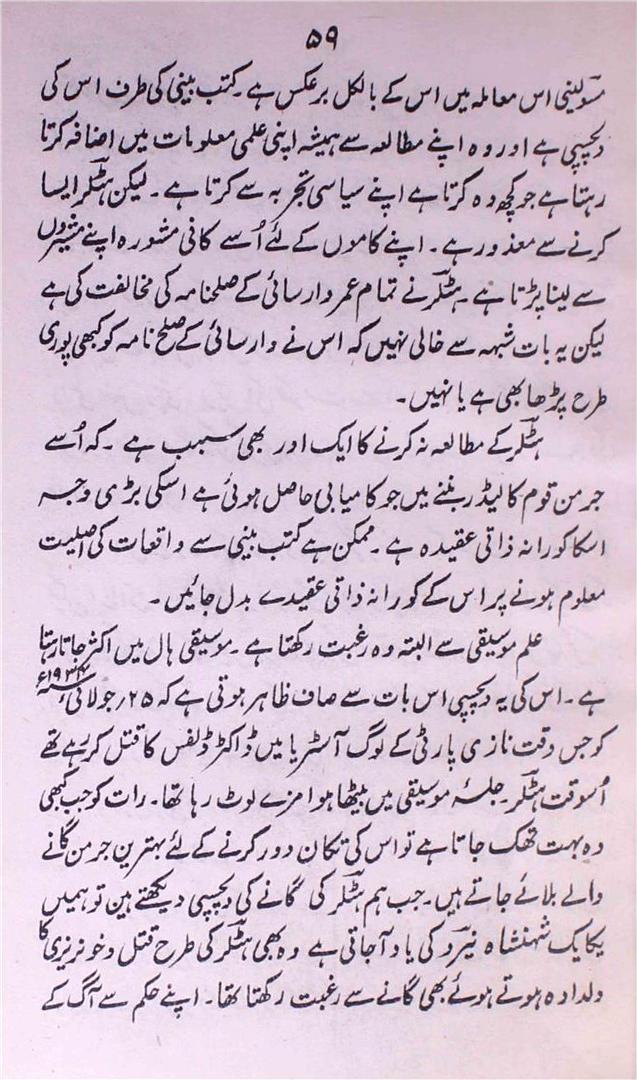 ۵۹
مسولینی اس معاملہ میں اس کے بالکل برعکس ہے۔ کتب بینی کی طرف اس کی
دلچسپی ہے اور وہ اپنے مطالعہ سے ہمیشہ اپنی علمی معلومات میں اضافہ کرتا
رہتا ہے جو کچھ وہ کرتا ہے اپنے سیاسی تجربہ سے کرتا ہے۔ لیکن ہٹلر ایسا
کرنے سے معذور ہے۔ اپنے کاموں کے لئے اُسے کافی مشورہ اپنے مشیروں
سے لینا پڑتا ہے۔ ہٹلر نے تمام عمر وارسائی کے صلحنامہ کی مخالفت کی ہے
لیکن یہ بات شبہہ سے خالی نہیں کہ اس نے وارسائی کے صلح نامہ کو کبھی پوری
طرح پڑھا بھی ہے یا نہیں۔
ہٹلر کے مطالعہ نہ کرنے کا ایک اور بھی سبب ہے۔ کہ اُسے
جرمن قوم کا لیڈر بننے میں جو کامیابی حاصل ہوئی ہے اسکی بڑی وجہ
اسکا کورانہ ذاتی عقیدہ ہے۔ ممکن ہے کتب بینی سے واقعات کی اصلیت
معلوم ہونے پر اس کے کورانہ ذاتی عقیدے بدل جائیں۔
علم موسیقی سے البتہ وہ رغبت رکھتا ہے۔ موسیقی ہال میں اکثر جاتا رہتا
ہے۔ اس کی یہ دلچسپی اس بات سے صاف ظاہر ہوتی ہے کہ ۲۵؍ جولائی ۱۹۳۴ء
کو جس وقت نازی پارٹی کے لوگ آسٹریا میں ڈاکٹر ڈلفس کا قتل کر رہے تھے
اُسوقت ہٹلر جلسۂ موسیقی میں بیٹھا ہوا مزے لوٹ رہا تھا۔ رات کو جب کبھی
وہ بہت تھک جاتا ہے تو اس کی تکان دور کرنے کے لئے بہترین جرمن گانے
والے بلائے جاتے ہیں۔ جب ہم ہٹلر کی گانے کی دلچسپی دیکھتے ہین تو ہمیں
یکایک شہنشاہ نیرو کی یاد آجاتی ہے وہ بھی ہٹلر کی طرح قتل و خونریزی کا
دلدادہ ہوتے ہوئے بھی گانے سے رغبت رکھتا تھا۔ اپنے حکم سے آگ کے